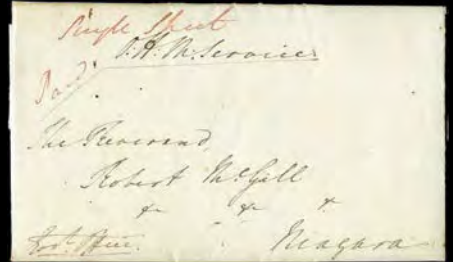 Single Sheet
O. H. M. Service
Paid
The Reverend
Robert McGill
&c &c &c
Niagara